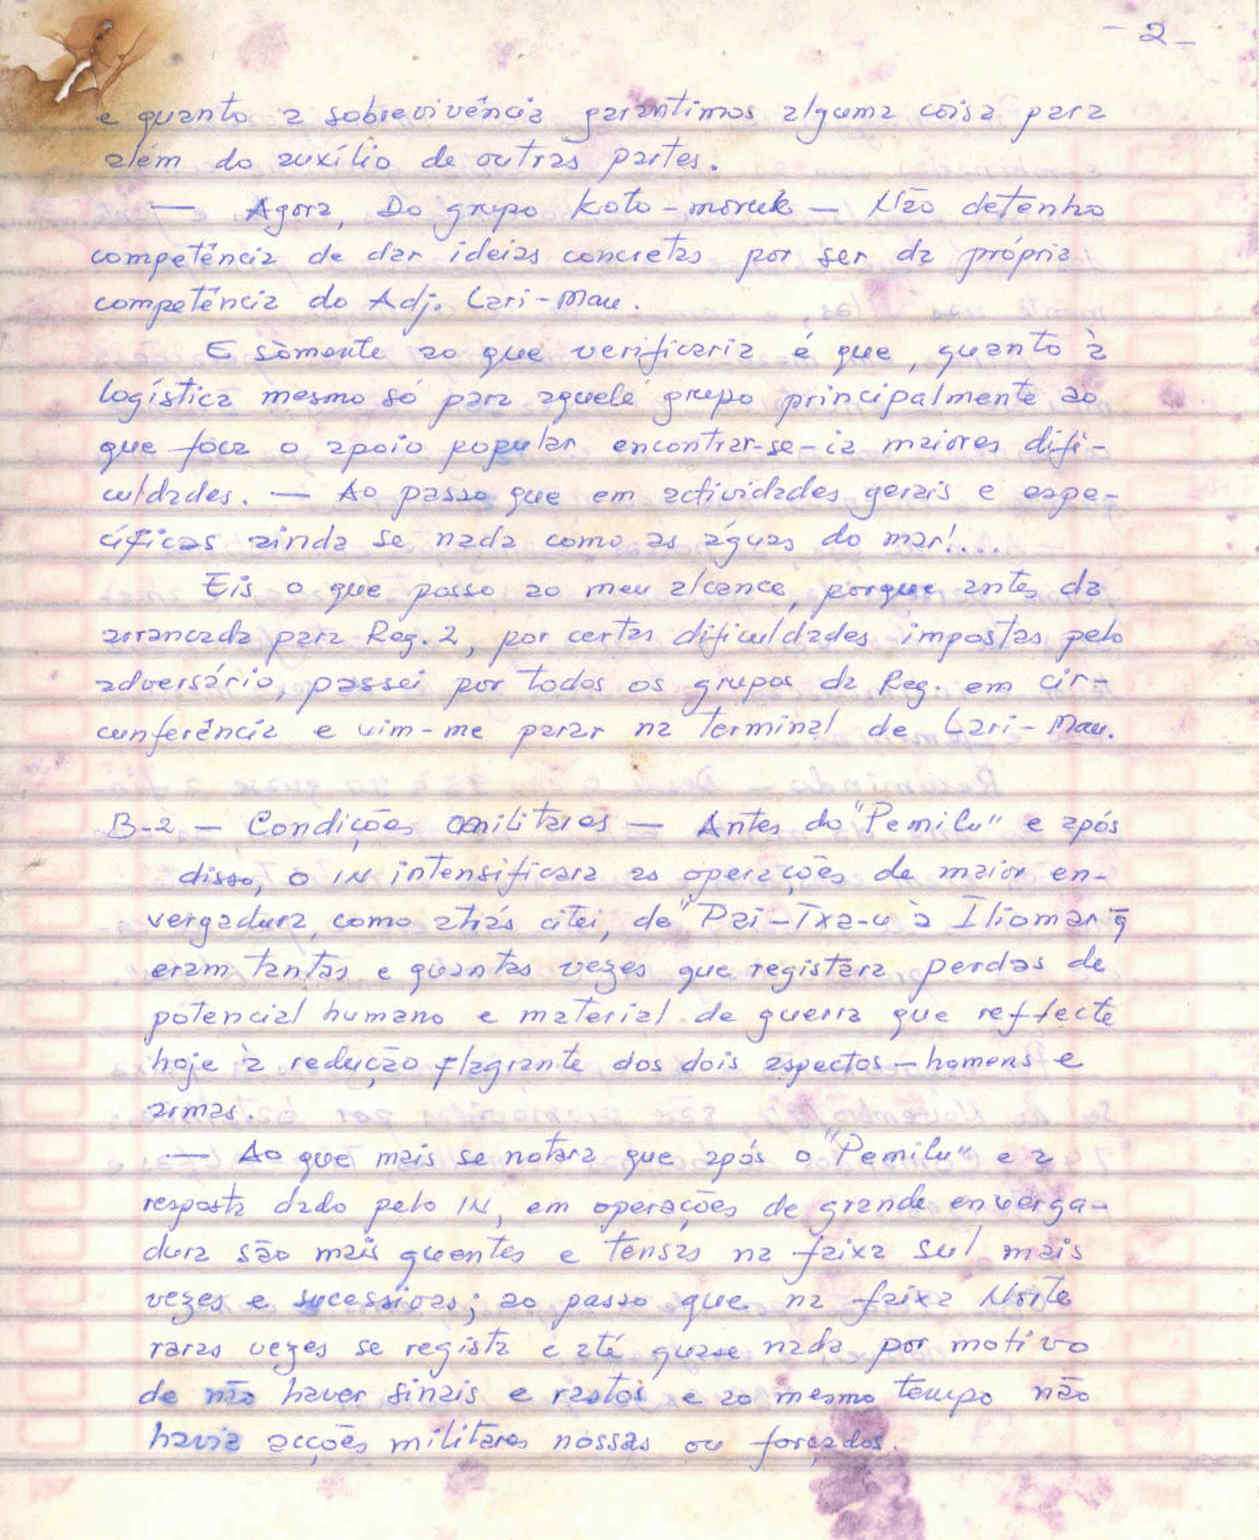 - 2 -
e quanto a sobrevivência garantimos alguma coisa para
além do auxílio de outras partes.
— Agora, Do grupo Koto-moruk — Não detenho
competência de dar ideias concretas por ser da própria
competência do Adj. Lari-Mau.
E sòmente ao que verificaria é que, quanto à
logística mesmo só para aquele grupo principalmente ao
que foca o apoio popular encontrar-se-ia maiores difi-
culdades. — Ao passo que em actividades gerais e espe-
cíficas ainda se nada como as águas do mar!...
Eis o que posso ao meu alcance, porque antes da
arrancada para Reg. 2, por certas dificuldades impostas pelo
adversário, passei por todos os grupos da Reg. em cir-
cunferência e vim-me parar na terminal de Lari-Mau.
B-2 — Condições militares — Antes do "Pemilu" e após
disso, o IN intensificara as operações de maior en-
vergadura, como atrás citei, de "Pai-Txa-u à Iliomar q̄
eram tantas e quantas vezes que registara perdas de
potencial humano e material de guerra que reflecte
hoje à redução flagrante dos dois aspectos — homens e
armas.
— Ao que mais se notara que após o "Pemilu" e a
resposta dado pelo IN, em operações de grande enverga-
dura são mais quentes e tensas na faixa Sul mais
vezes e sucessivas; ao passo que na faixa Norte
raras vezes se regista e até quase nada por motivo
de não haver sinais e rastos e ao mesmo tempo não
havia acções militares nossas ou forçados.